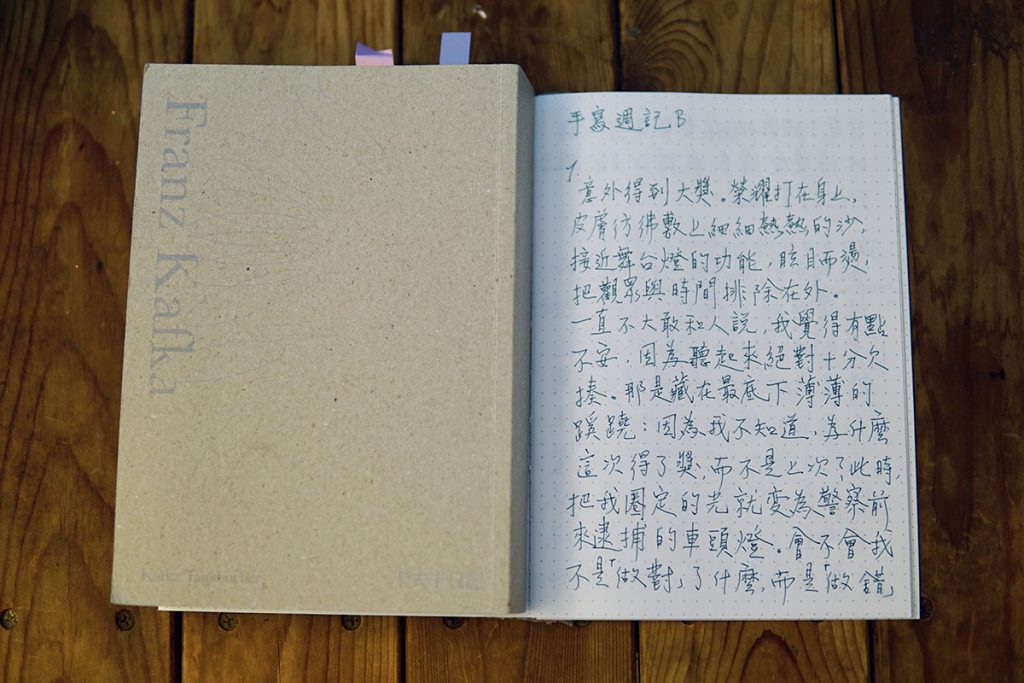 Franz Kafka
Kafka Tagebücher
卡夫卡日記
手寫週記B
1.
意外得到大獎。榮耀打在身上,
皮膚彷彿敷上細細熱熱的沙,
接近舞台燈的功能,眩目而燙,
把觀眾與時間排除在外。
一直不大敢和人說,我覺得有點
不安,因為聽起來絕對十分欠
揍。那是藏在最底下薄薄的
蹊蹺:因為我不知道,為什麼
這次得了獎,而不是上次?此時,
把我圈定的光就變為警察前
來逮捕的車頭燈。會不會我
不是「做對」了什麼,而是「做錯」